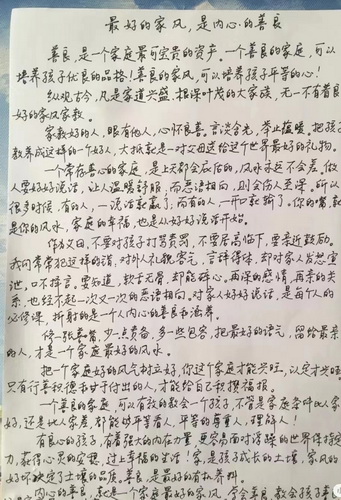 最好的家风,是内心的善良
善良,是一个家庭最可宝贵的资产。一个善良的家庭,可以
培养孩子优良的品格!善良的家风,可以培养孩子平等的心!
纵观古今,凡是家道兴盛,根深叶茂的大家族,无一不有着良
好的家风家教。
家教好的人,眼有他人,心怀良善。言谈合光,举止温暖。把孩子
教养成这样的一个好人,大抵就是一对父母送给这个世界最好的礼物。
一个常存善心的家庭,是上天都会庇佑的,风水永远不会差。做
人要好好说话,让人温暖舒服,而恶语相向,则会伤人至深。所以
很多时候,有的人,一说话就赢了;而有的人,一开口就输了。你的嘴,就
是你的风水,家庭的幸福,也是从好好说话开始。
作为父母,不要对孩子打骂责罚,不要居高临下,要亲近鼓励。
我们常常犯这样的错,对外人礼貌客气,言辞得体,却对家人发怒宣
泄,口不择言。要知道,软舌无骨,却能碎心。再深的感情,再亲的关
系,也经不起一次又一次的恶语相向。对家人好好说话,是每个人的
必修课,折射的是一个人内心的善良和涵养。
修一张善嘴,少一点责备,多一些包容,把最好的语气,留给最亲
的人,才是一个家庭最好的风水。
把一个家庭好的风气树立好,你这个家庭才能兴旺,
只有行善积德和甘于付出的人,才能给自己积攒福报。
一个善良的家庭,可以有效的教会一个孩子,不管是家庭条件比人家
好,还是比人家差,都能够平等看人,平等的尊重人,理解人!
有良心的孩子,有着强大的内在力量,更容易面对浮躁的世界保持定
力,获得心灵的安稳,过上幸福的生活!家,是孩子成长的土壤,家风的
好坏决定了土壤的品质,善良,是最好的有机养料。
内心的善良,就是一个家庭最好的家风,